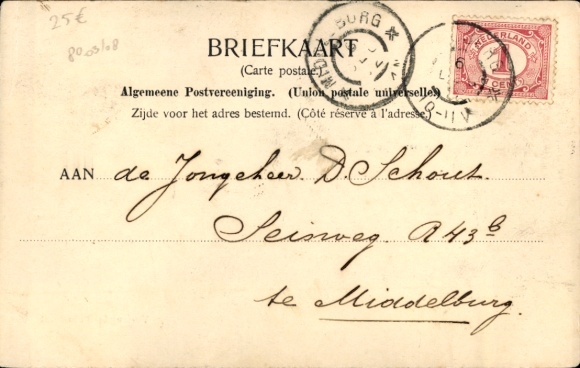 25€
BRIEFKAART
(Carte postale)
Algemeene Postvereeniging. (Union postale universelle)
Zijde voor het adres bestemd. (Côté réservé à l'adresse.)
NEDERLAND
1
CENT
AAN de Jongeheer D. Schout.
Seisweg A 43 b
te Middelburg.